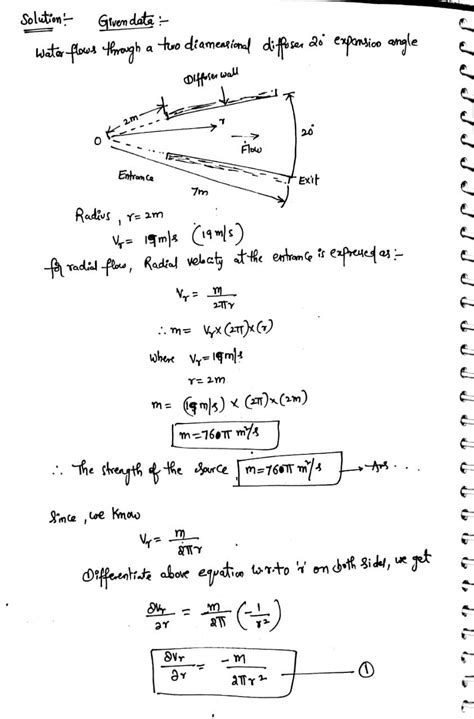 Solution:- Given data:-
Water flows through a two diamensional diffoser 20° expansion angle
Diffoser wall
2m
r
20°
O
Flow
Entrance
Exit
7m
Radius, r = 2m
Vr = 19m/s (19m/s)
for radial flow, Radial velocity at the entrance is expressed as:-
Vr = m/2πr
∴ m = Vr×(2π)×(r)
Where Vr = 19m/s
r = 2m
m = (19m/s) × (2π)×(2m)
m = 760π m²/s
∴ The strength of the source, m = 760π m²/s → Ans...
Since, we know
Vr = m/2πr
Differentiate above equation w.r.to 'r' on both sides, we get
∂Vr/∂r = m/2π (-1/r²)
∂Vr/∂r = -m/2πr² ①